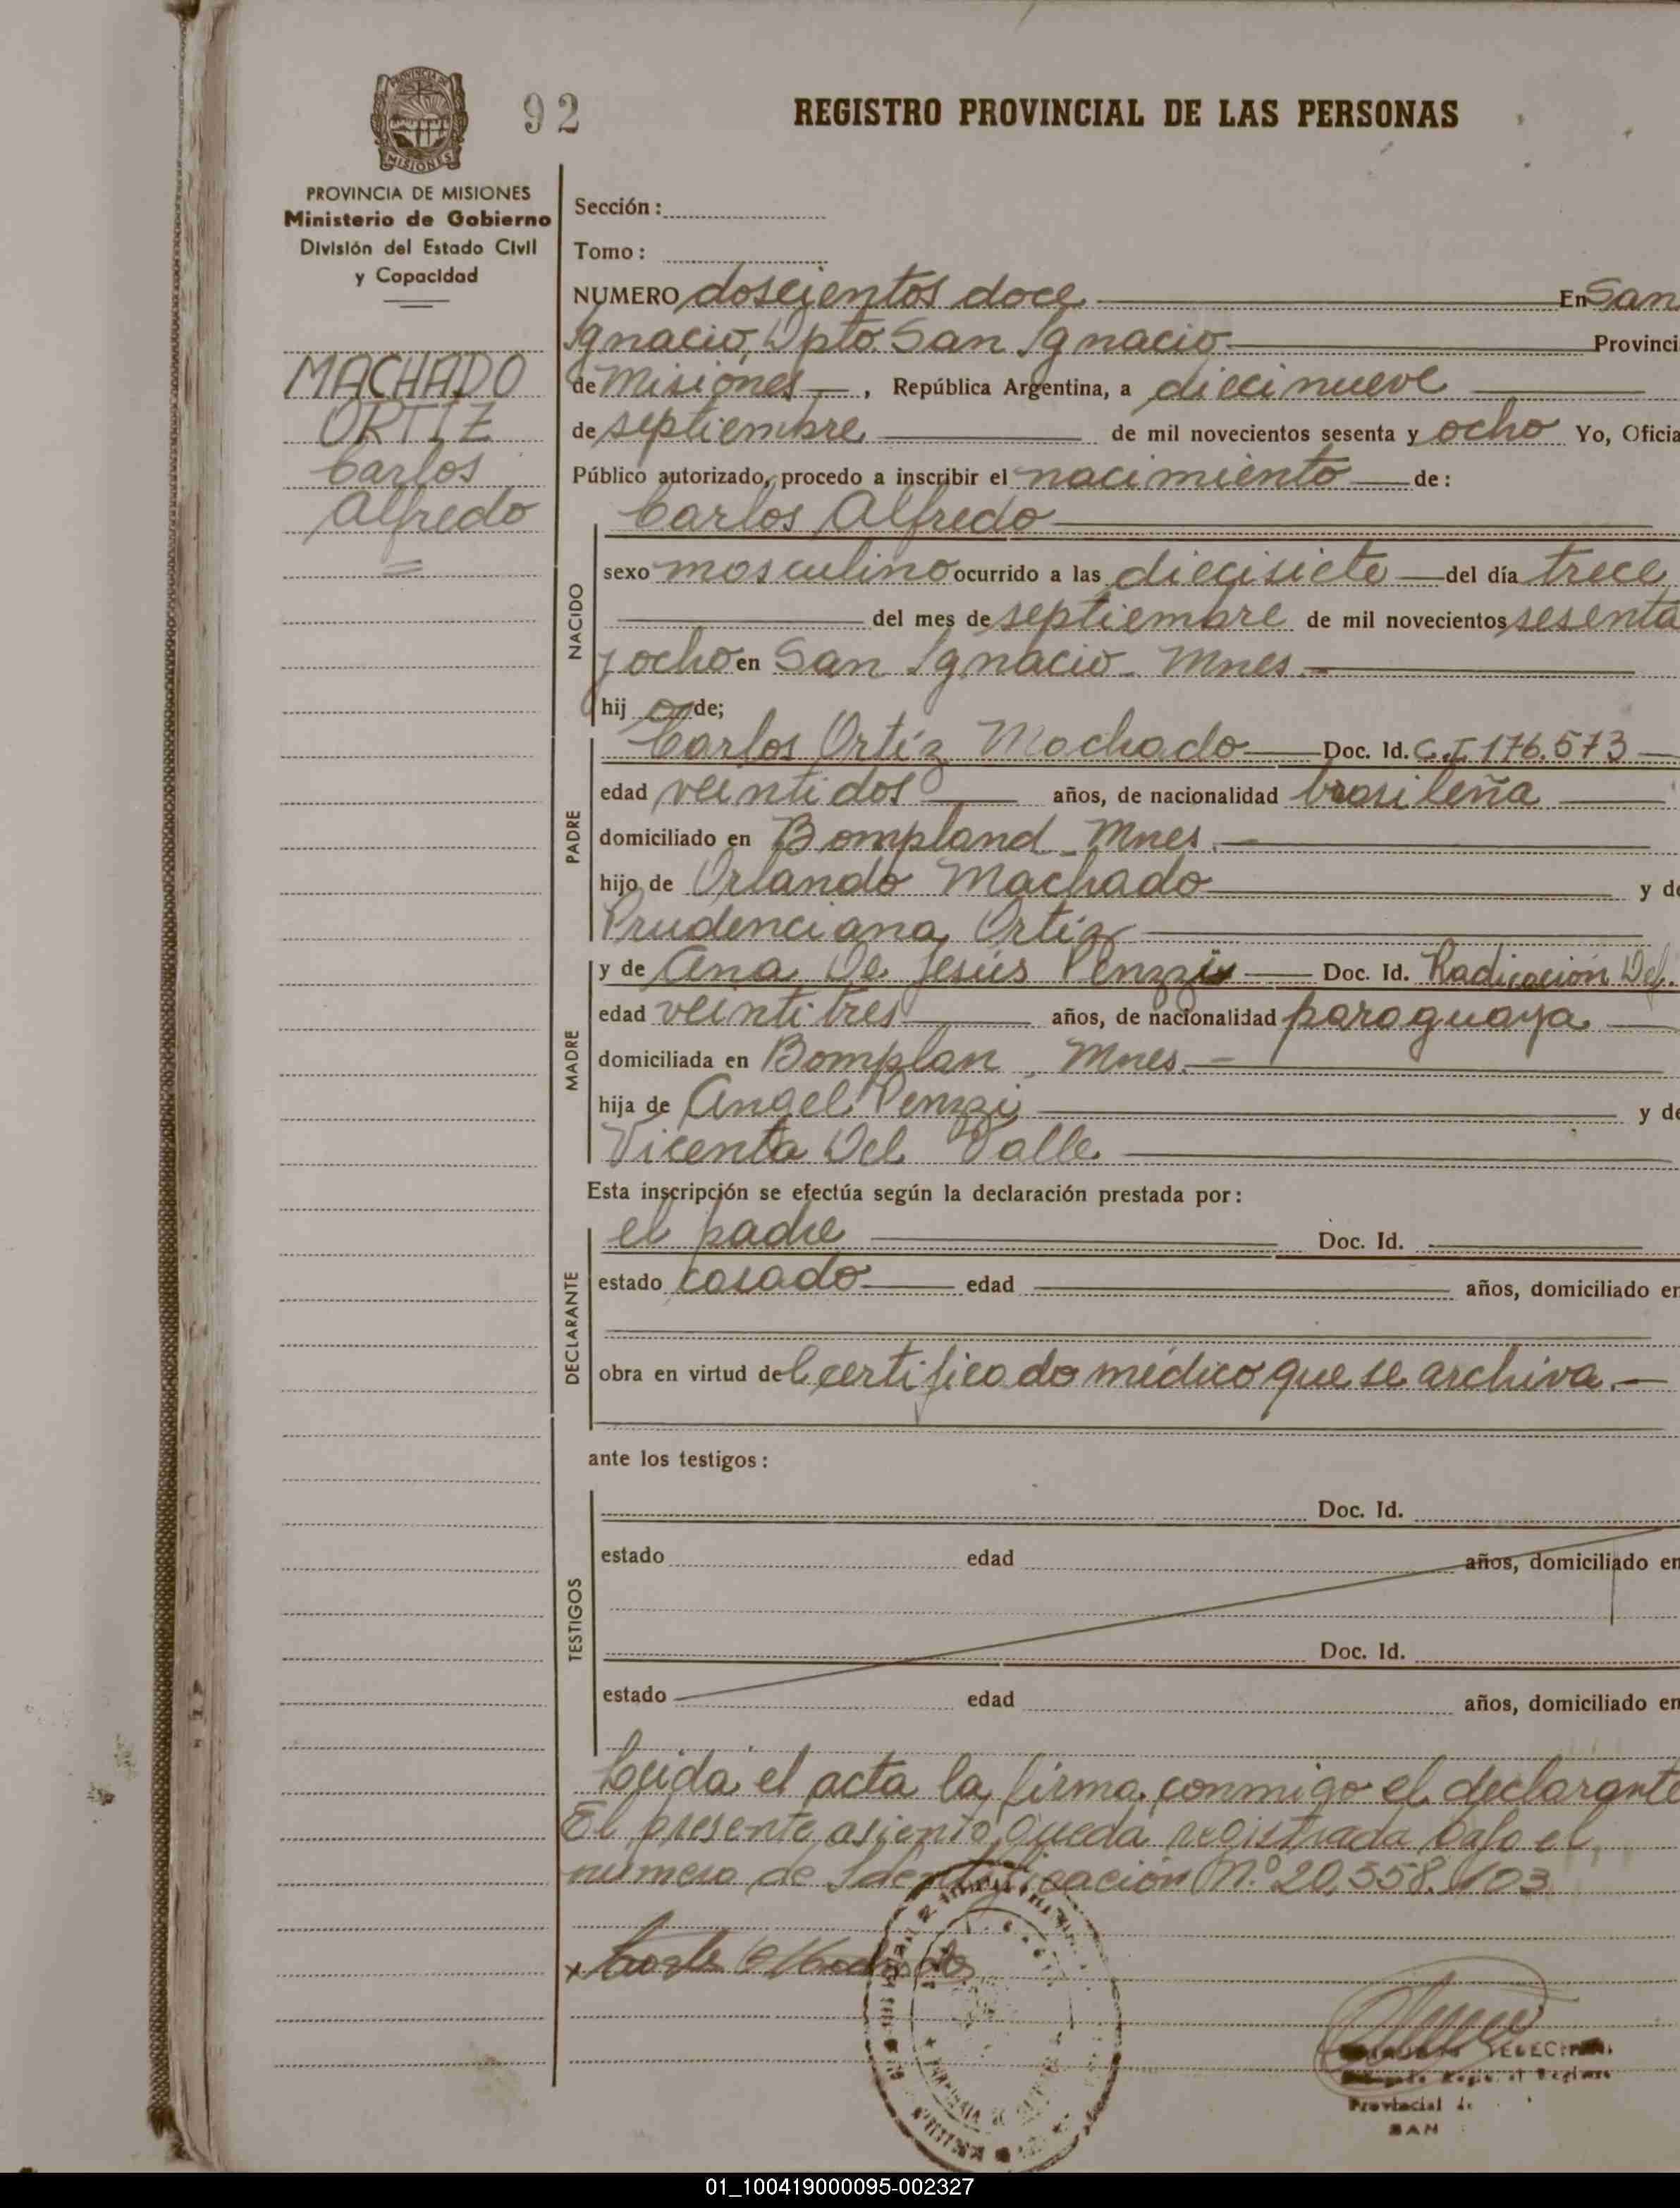 92
REGISTRO PROVINCIAL DE LAS PERSONAS
PROVINCIA DE
MISIONES
PROVINCIA DE MISIONES
Ministerio de Gobierno
División del Estado Civil
y Capacidad
MACHADO
ORTIZ
Carlos
Alfredo
Sección:
Tomo:
NUMERO doscientos doce En San
Ignacio, Dpto. San Ignacio Provinci
de Misiones, República Argentina, a diecinueve
de septiembre de mil novecientos sesenta y ocho Yo, Oficia
Público autorizado, procedo a inscribir el nacimiento de:
Carlos Alfredo
NACIDO
sexo masculino ocurrido a las diecisiete del día trece
del mes de septiembre de mil novecientos sesenta
y ocho en San Ignacio - Mnes.-
hij o de;
PADRE
Carlos Ortíz Machado Doc. Id. C.I 176.573
edad veintidos años, de nacionalidad brasileña
domiciliado en Bompland - Mnes.-
hijo de Orlando Machado y de
Prudenciana Ortíz
MADRE
y de Ana De Jesús Penzzi Doc. Id. Radicación Def.
edad veintitres años, de nacionalidad paraguaya
domiciliada en Bomplan - Mnes.-
hija de Angel Penzzi y de
Vicenta Del Valle
Esta inscripción se efectúa según la declaración prestada por:
DECLARANTE
el padre Doc. Id.
estado casado edad años, domiciliado en
obra en virtud del certificado médico que se archiva.-
ante los testigos:
TESTIGOS
Doc. Id.
estado edad años, domiciliado en
Doc. Id.
estado edad años, domiciliado en
Leida el acta la firma conmigo el declarante
El presente asiento queda registrada bajo el
número de Identificación Nº 20.558.103
Provincial de
SAN
01_100419000095-002327